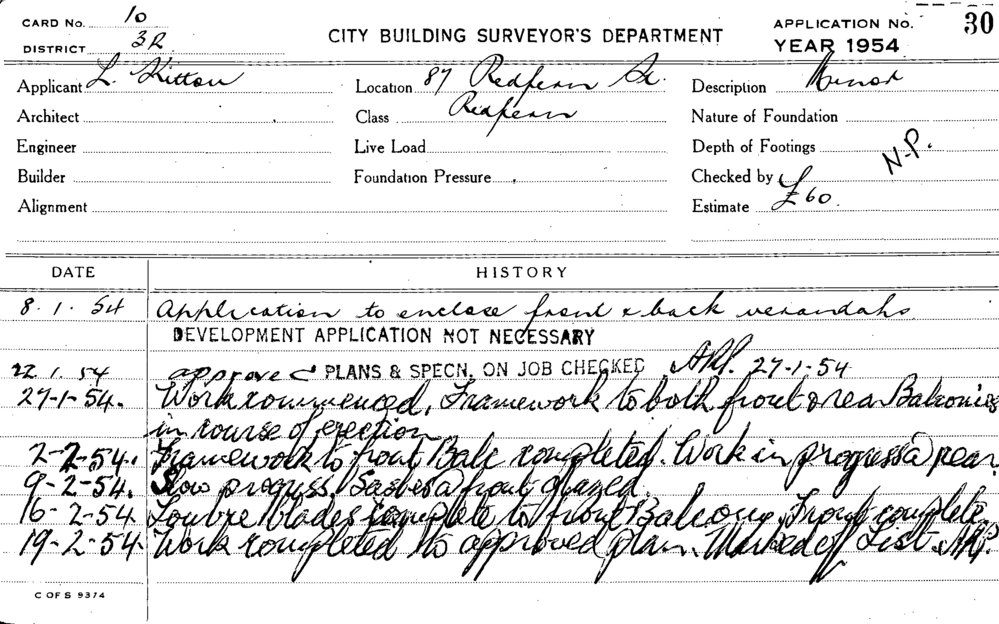 CARD NO. 10
DISTRICT 3R
CITY BUILDING SURVEYOR'S DEPARTMENT
APPLICATION NO. 30
YEAR 1954
Applicant L. Kitson
Location 87 Redfern St.
Description Minor
Architect
Class Redfern
Nature of Foundation
Engineer
Live Load
Depth of Footings
N.P.
Builder
Foundation Pressure
Checked by
Alignment
Estimate £60.
DATE HISTORY
8.1.54 Application to enclose front & back verandahs
DEVELOPMENT APPLICATION NOT NECESSARY
22.1.54 approved PLANS & SPECN. ON JOB CHECKED 27-1-54
27-1-54. Work commenced. Framework to both front & rear Balconies
in course of erection
2-2-54. Framework to front Balc completed. Work in progress a rear.
9-2-54. Slow progress. Sashes a front glazed.
16-2-54. Louvre blades complete to front Balcony. Front complete
19-2-54. Work completed to approved plan. Marked off List.
C OF S 9374